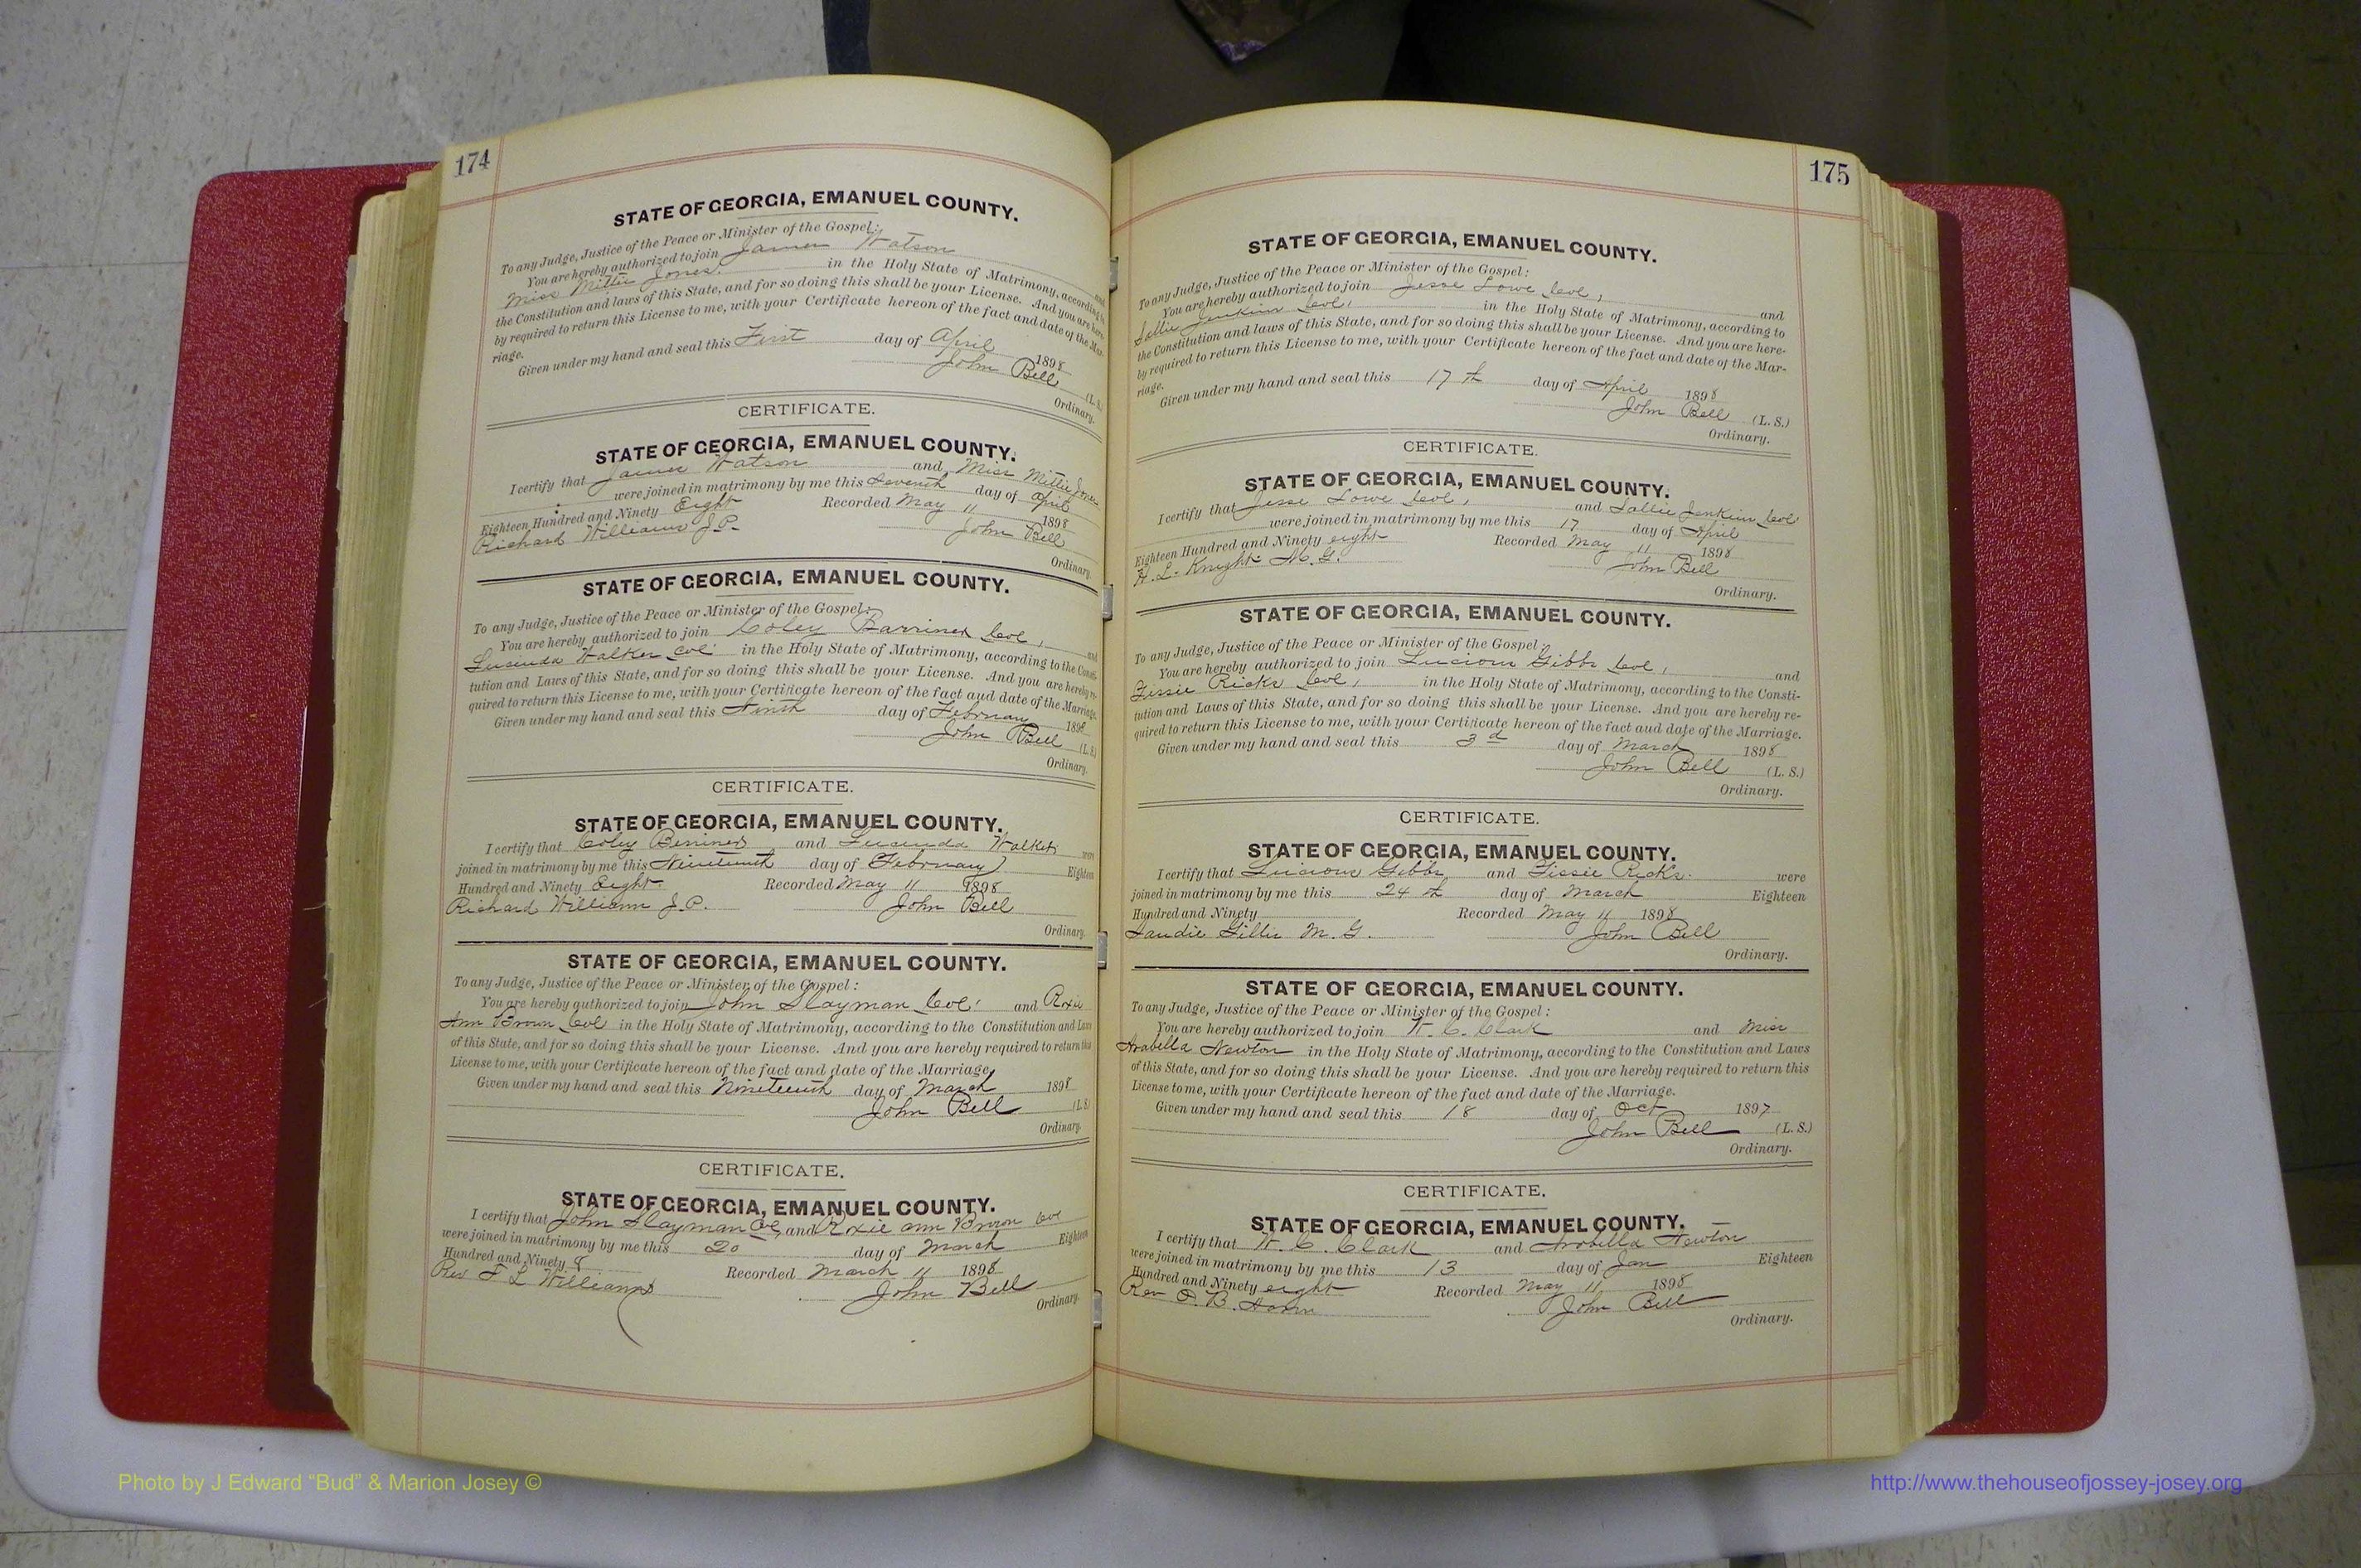 174
STATE OF GEORGIA, EMANUEL COUNTY.
To any Judge, Justice of the Peace or Minister of the Gospel:
You are hereby authorized to join James Watson and
Miss Mittie Jones. in the Holy State of Matrimony, according to
the Constitution and laws of this State, and for so doing this shall be your License. And you are here-
by required to return this License to me, with your Certificate hereon of the fact and date of the Mar-
riage.
Given under my hand and seal this First day of April 1898
John Bell (L. S.)
Ordinary.
CERTIFICATE.
STATE OF GEORGIA, EMANUEL COUNTY.
I certify that James Watson and Miss Mittie Jones
were joined in matrimony by me this Seventh day of April
Eighteen Hundred and Ninety Eight Recorded May 11 1898
Richard Williams J.P. John Bell
Ordinary.
STATE OF GEORGIA, EMANUEL COUNTY.
To any Judge, Justice of the Peace or Minister of the Gospel:
You are hereby authorized to join Coley Barriner Col, and
Lucinda Walker Col in the Holy State of Matrimony, according to the Consti-
tution and Laws of this State, and for so doing this shall be your License. And you are hereby re-
quired to return this License to me, with your Certificate hereon of the fact aud date of the Marriage.
Given under my hand and seal this Ninth day of February 1898
John Bell (L. S.)
Ordinary.
CERTIFICATE.
STATE OF GEORGIA, EMANUEL COUNTY.
I certify that Coley and Lucinda Walker were
joined in matrimony by me this Nineteenth day of February Eighteen
Hundred and Ninety Eight. Recorded May 11 1898
Richard Williams J.P. John Bell
Ordinary.
STATE OF GEORGIA, EMANUEL COUNTY.
To any Judge, Justice of the Peace or Minister of the Gospel:
You are hereby authorized to join John Slayman Col. and Roxie
Ann Brown Col in the Holy State of Matrimony, according to the Constitution and Laws
of this State, and for so doing this shall be your License. And you are hereby required to return this
License to me, with your Certificate hereon of the fact and date of the Marriage.
Given under my hand and seal this Nineteenth day of March 1898
John Bell (L. S.)
Ordinary.
CERTIFICATE.
STATE OF GEORGIA, EMANUEL COUNTY.
I certify that John Slayman Col, and Roxie ann Brown Col
were joined in matrimony by me this 20 day of March Eighteen
Hundred and Ninety 8 Recorded March 11 1898
Rev F L Williams John Bell
Ordinary.
175
STATE OF GEORGIA, EMANUEL COUNTY.
To any Judge, Justice of the Peace or Minister of the Gospel:
You are hereby authorized to join Jesse Lowe Col, and
Sallie Jenkins Col, in the Holy State of Matrimony, according to
the Constitution and laws of this State, and for so doing this shall be your License. And you are here-
by required to return this License to me, with your Certificate hereon of the fact and date of the Mar-
riage.
Given under my hand and seal this 17th day of April 1898
John Bell (L. S.)
Ordinary.
CERTIFICATE.
STATE OF GEORGIA, EMANUEL COUNTY.
I certify that Jesse Lowe Col, and Sallie Jenkins Col
were joined in matrimony by me this 17 day of April
Eighteen Hundred and Ninety eight Recorded May 11 1898
H. L. Knight M. G. John Bell
Ordinary.
STATE OF GEORGIA, EMANUEL COUNTY.
To any Judge, Justice of the Peace or Minister of the Gospel:
You are hereby authorized to join Lucious Gibbs Col, and
Ricks Col, in the Holy State of Matrimony, according to the Consti-
tution and Laws of this State, and for so doing this shall be your License. And you are hereby re-
quired to return this License to me, with your Certificate hereon of the fact aud date of the Marriage.
Given under my hand and seal this 3d day of March 1898
John Bell (L. S.)
Ordinary.
CERTIFICATE.
STATE OF GEORGIA, EMANUEL COUNTY.
I certify that Lucious Gibbs and Ricks. were
joined in matrimony by me this 24th day of March Eighteen
Hundred and Ninety Recorded May 11 1898
Gillis M. G. John Bell
Ordinary.
STATE OF GEORGIA, EMANUEL COUNTY.
To any Judge, Justice of the Peace or Minister of the Gospel:
You are hereby authorized to join W. C. Clark and Miss
Arabella Newton in the Holy State of Matrimony, according to the Constitution and Laws
of this State, and for so doing this shall be your License. And you are hereby required to return this
License to me, with your Certificate hereon of the fact and date of the Marriage.
Given under my hand and seal this 18 day of Oct 1897
John Bell (L. S.)
Ordinary.
CERTIFICATE.
STATE OF GEORGIA, EMANUEL COUNTY.
I certify that W. C. Clark and Arabella Newton
were joined in matrimony by me this 13 day of Jan Eighteen
Hundred and Ninety eight Recorded May 11 1898
Rev John Bell
Ordinary.
Photo by J Edward “Bud” & Marion Josey ©
http://www.thehouseofjossey-josey.org